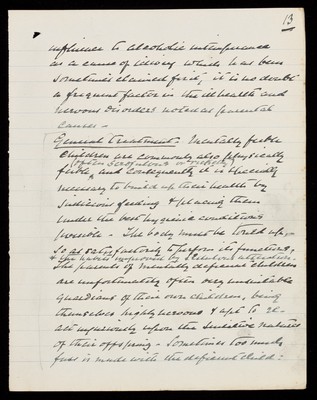 13
influence to alcoholic intemperance
as a cause of idiocy which has been
sometimes claimed for it, it is no doubt
a frequent factor in the ill health and
nervous disorders noted as parental
causes -
General treatment. Mentally feeble
children are commonly also physically
often scrofulous or rickety
feeble, and consequently it is specially
necessary to build up their health by
judicious feeding & placing them
under the best hygienic conditions
possible - The body must be built up,
so as satisfactorily to perform its functions,
& the habits improved by
The parents of mentally deficient children
are unfortunately often very unsuitable
guardians of their own children, being
themselves highly nervous & apt to re-
act injuriously upon the sensitive natures
of their offspring - Sometimes too much
fuss is made with the deficient child: